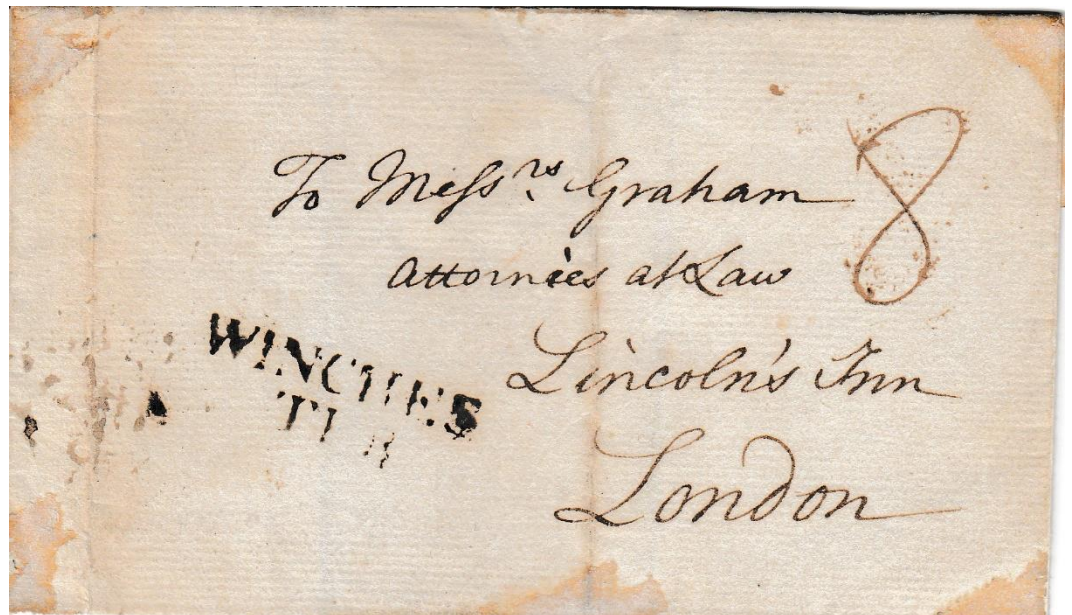 To Messrs Graham
8
Attornies at Law
WINCHES
TER
Lincoln's Inn
London